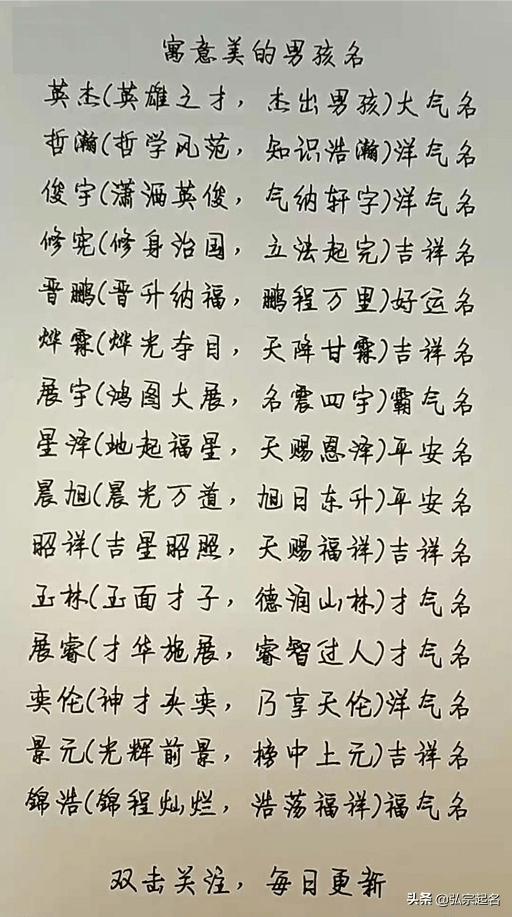 寓意美的男孩名
英杰(英雄之才，杰出男孩)大气名
哲瀚(哲学风范，知识浩瀚)洋气名
俊宇(潇洒英俊，气纳轩宇)洋气名
修宪(修身治国，立法起完)吉祥名
晋鹏(晋升纳福，鹏程万里)好运名
烨霖(烨光夺目，天降甘霖)吉祥名
展宇(鸿图大展，名震四宇)霸气名
星泽(地起福星，天赐恩泽)平安名
晨旭(晨光万道，旭日东升)平安名
昭祥(吉星昭照，天赐福祥)吉祥名
玉林(玉面才子，德润山林)才气名
展睿(才华施展，睿智过人)才气名
奕伦(神才头奕，乃享天伦)洋气名
景元(光辉前景，榜中上元)吉祥名
锦浩(锦程灿烂，浩荡福祥)福气名
双击关注，每日更新
头条 @弘宗起名